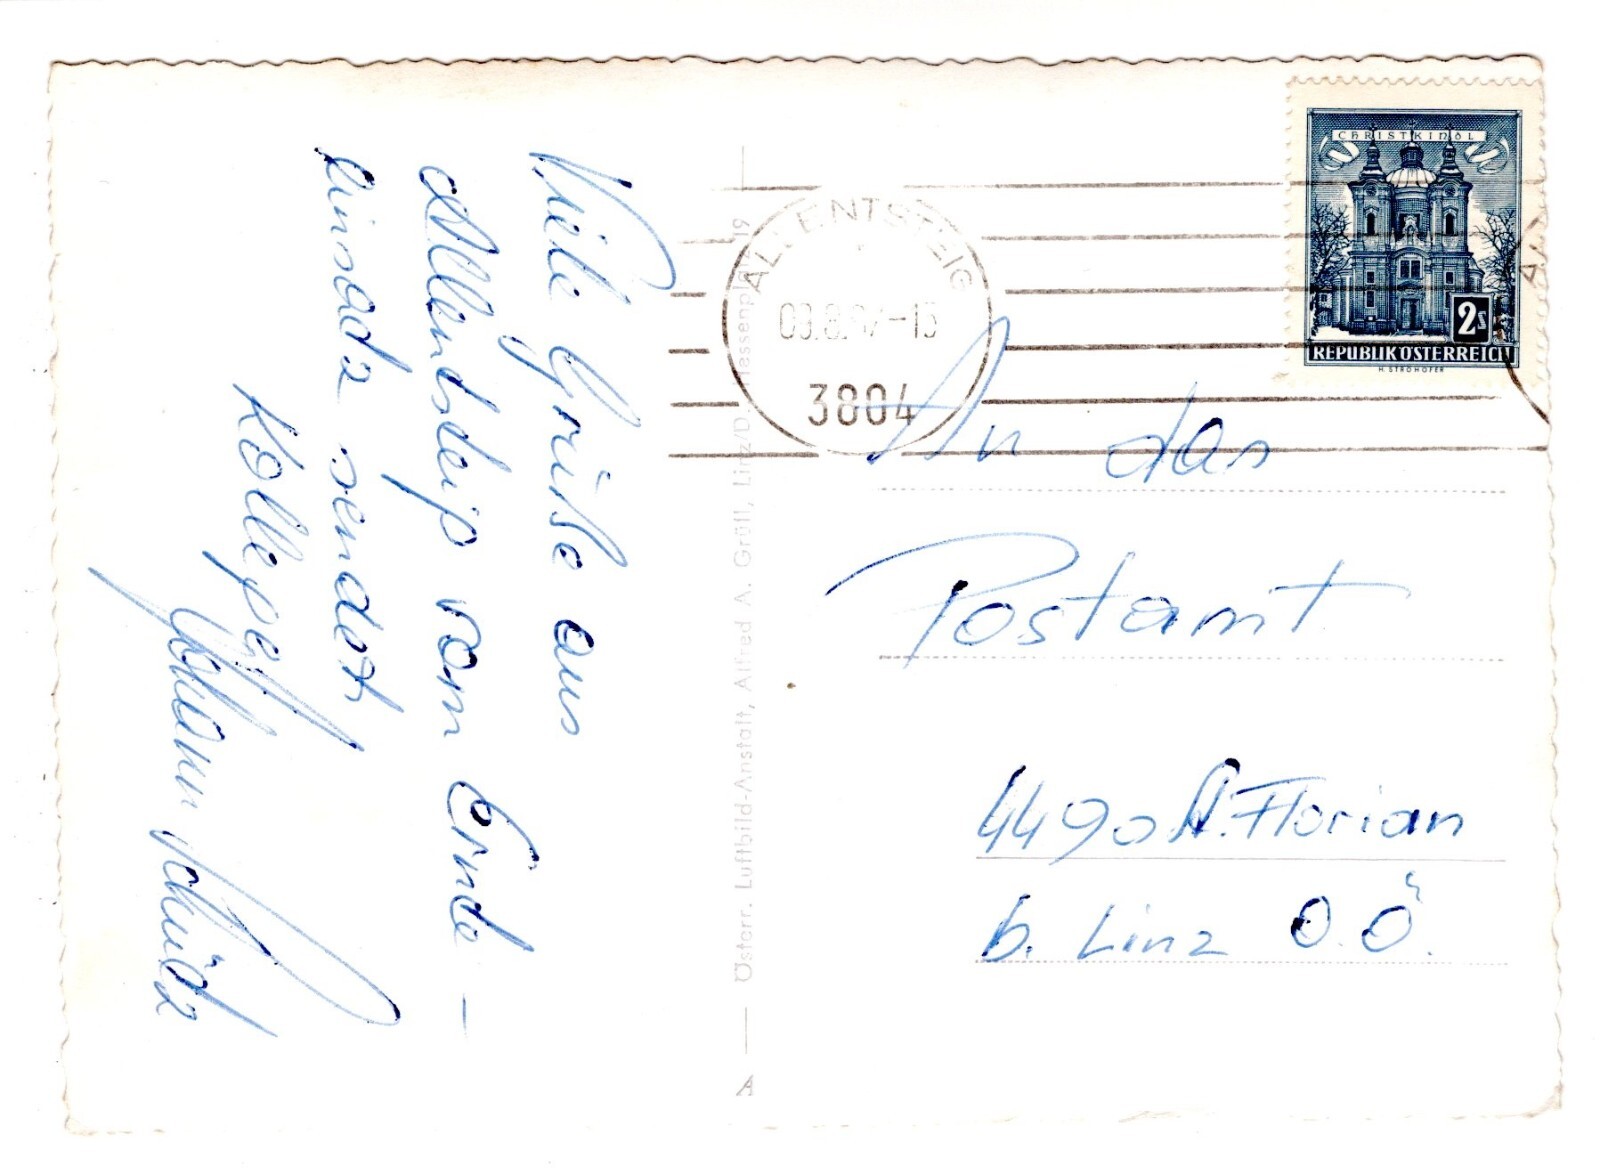 Viele Grüße aus
Allentsteig vom Ernte-
einsatz sendet
Kollege
Johann Schütz
Österr. Luftbild-Anstalt, Alfred A. Grüll, Linz/D. Hessenplatz 19
A
ALLENTSTEIG
3804
CHRISTKINDL
2s
REPUBLIK ÖSTERREICH
H. STROHOFER
An das
Postamt
4490 St. Florian
b. Linz O.Ö.